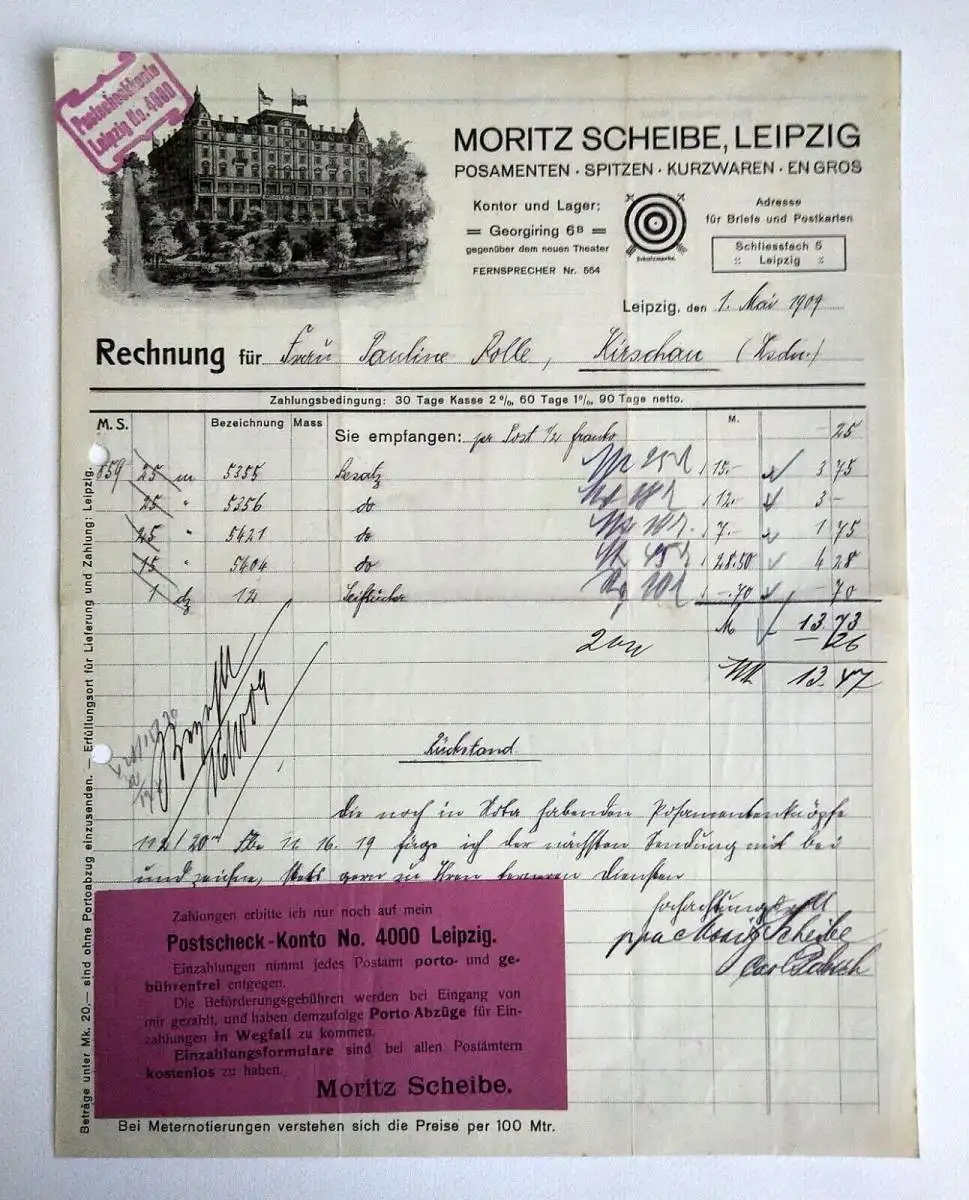 Postscheckkonto
Leipzig No. 4000
MORITZ SCHEIBE, LEIPZIG
POSAMENTEN · SPITZEN · KURZWAREN · EN GROS
Kontor und Lager:
Georgiring 6B
gegenüber dem neuen Theater
FERNSPRECHER Nr. 554
Schutzmarke.
Adresse
für Briefe und Postkarten
Schliessfach 5
Leipzig
Leipzig, den 1. Mai 1909
Rechnung für Frau Pauline Rolle, Kirschau
Zahlungsbedingung: 30 Tage Kasse 2%, 60 Tage 1%, 90 Tage netto.
M. S. Bezeichnung Mass Sie empfangen: per Post 1/2 franko M. - 25
859 25 m 5355 Besatz 15.- 3 75
25 " 5356 do 12.- 3 -
25 " 5421 do 7.- 1 75
15 " 5404 do 28.50 4 28
1 dz 12 -.70 - 70
M 13.73
26
13.47
Rückstand.
Die noch in Nota habenden Posamentenknöpfe
16. 19 füge ich der nächsten Sendung mit bei
und zeichne, stets gern zu Ihren ferneren Diensten
hochachtungsvoll
ppa Moritz Scheibe
Carl
Beträge unter Mk. 20,— sind ohne Portoabzug einzusenden. — Erfüllungsort für Lieferung und Zahlung: Leipzig.
Zahlungen erbitte ich nur noch auf mein
Postscheck-Konto No. 4000 Leipzig.
Einzahlungen nimmt jedes Postamt porto- und ge-
bührenfrei entgegen.
Die Beförderungsgebühren werden bei Eingang von
mir gezahlt, und haben demzufolge Porto Abzüge für Ein-
zahlungen in Wegfall zu kommen.
Einzahlungsformulare sind bei allen Postämtern
kostenlos zu haben.
Moritz Scheibe.
Bei Meternotierungen verstehen sich die Preise per 100 Mtr.